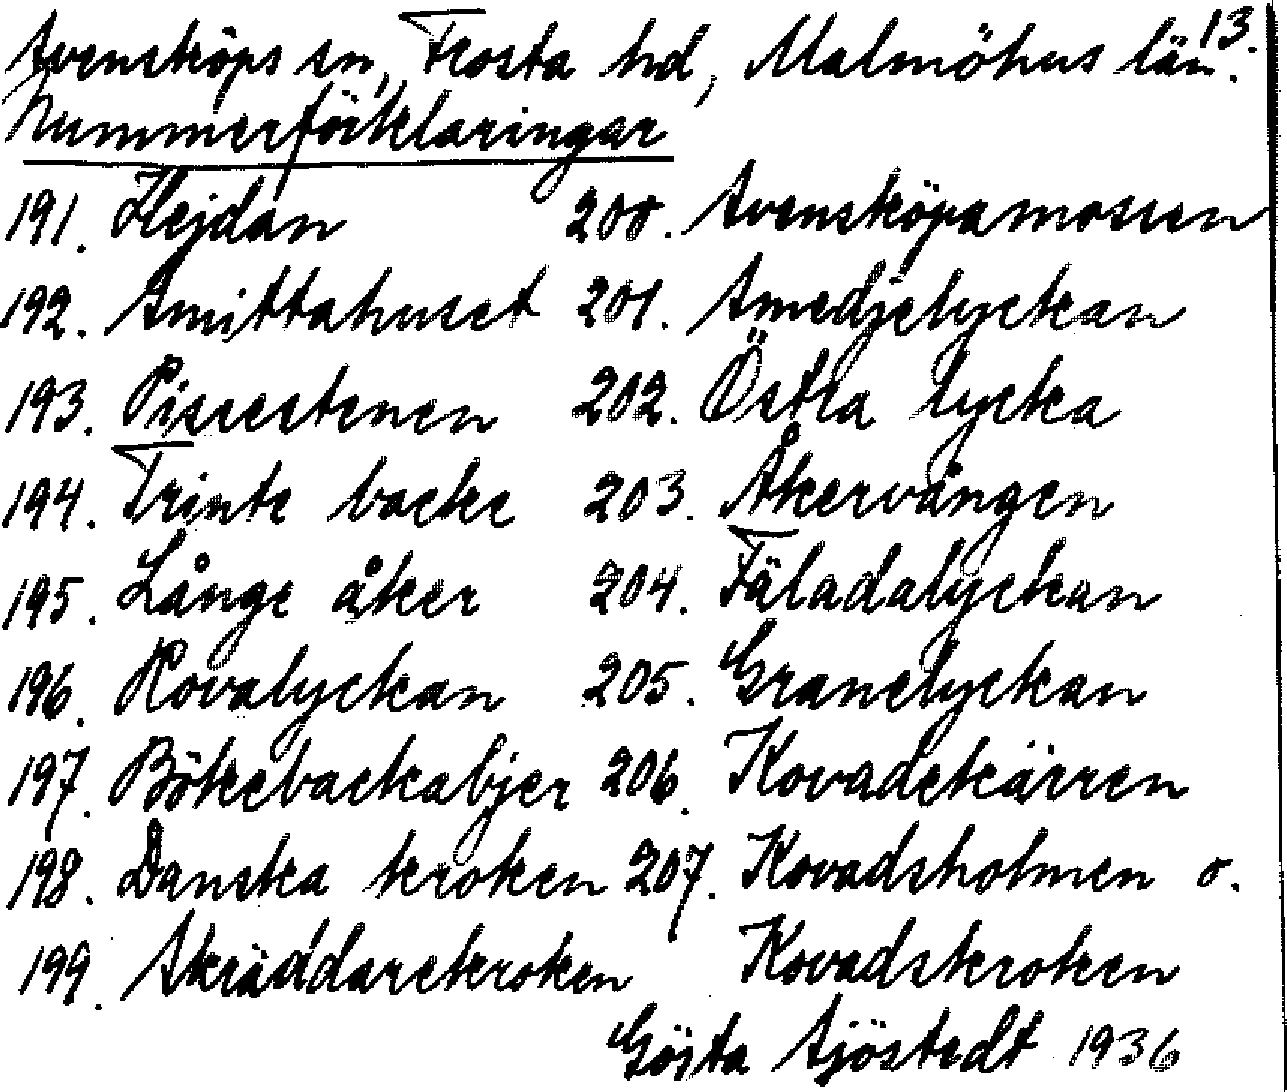 13.
Svensköps sn, Frosta hd, Malmöhus län.
Nummerförklaringar
191. Hejdan 200. Svensköpamossen
192. Smittahuset 201. Smedjelyckan
193. Pissestenen 202. Östra lycka
194. Trinte backe 203. Åkervången
195. Långe åker 204. Fäladalyckan
196. Rovalyckan 205. Granelyckan
197. Bökebackabjer 206. Kovadskärren
198. Danska kroken 207. Kovadsholmen o.
199. Skräddarekroken Kovadskroken
Gösta Sjöstedt 1936